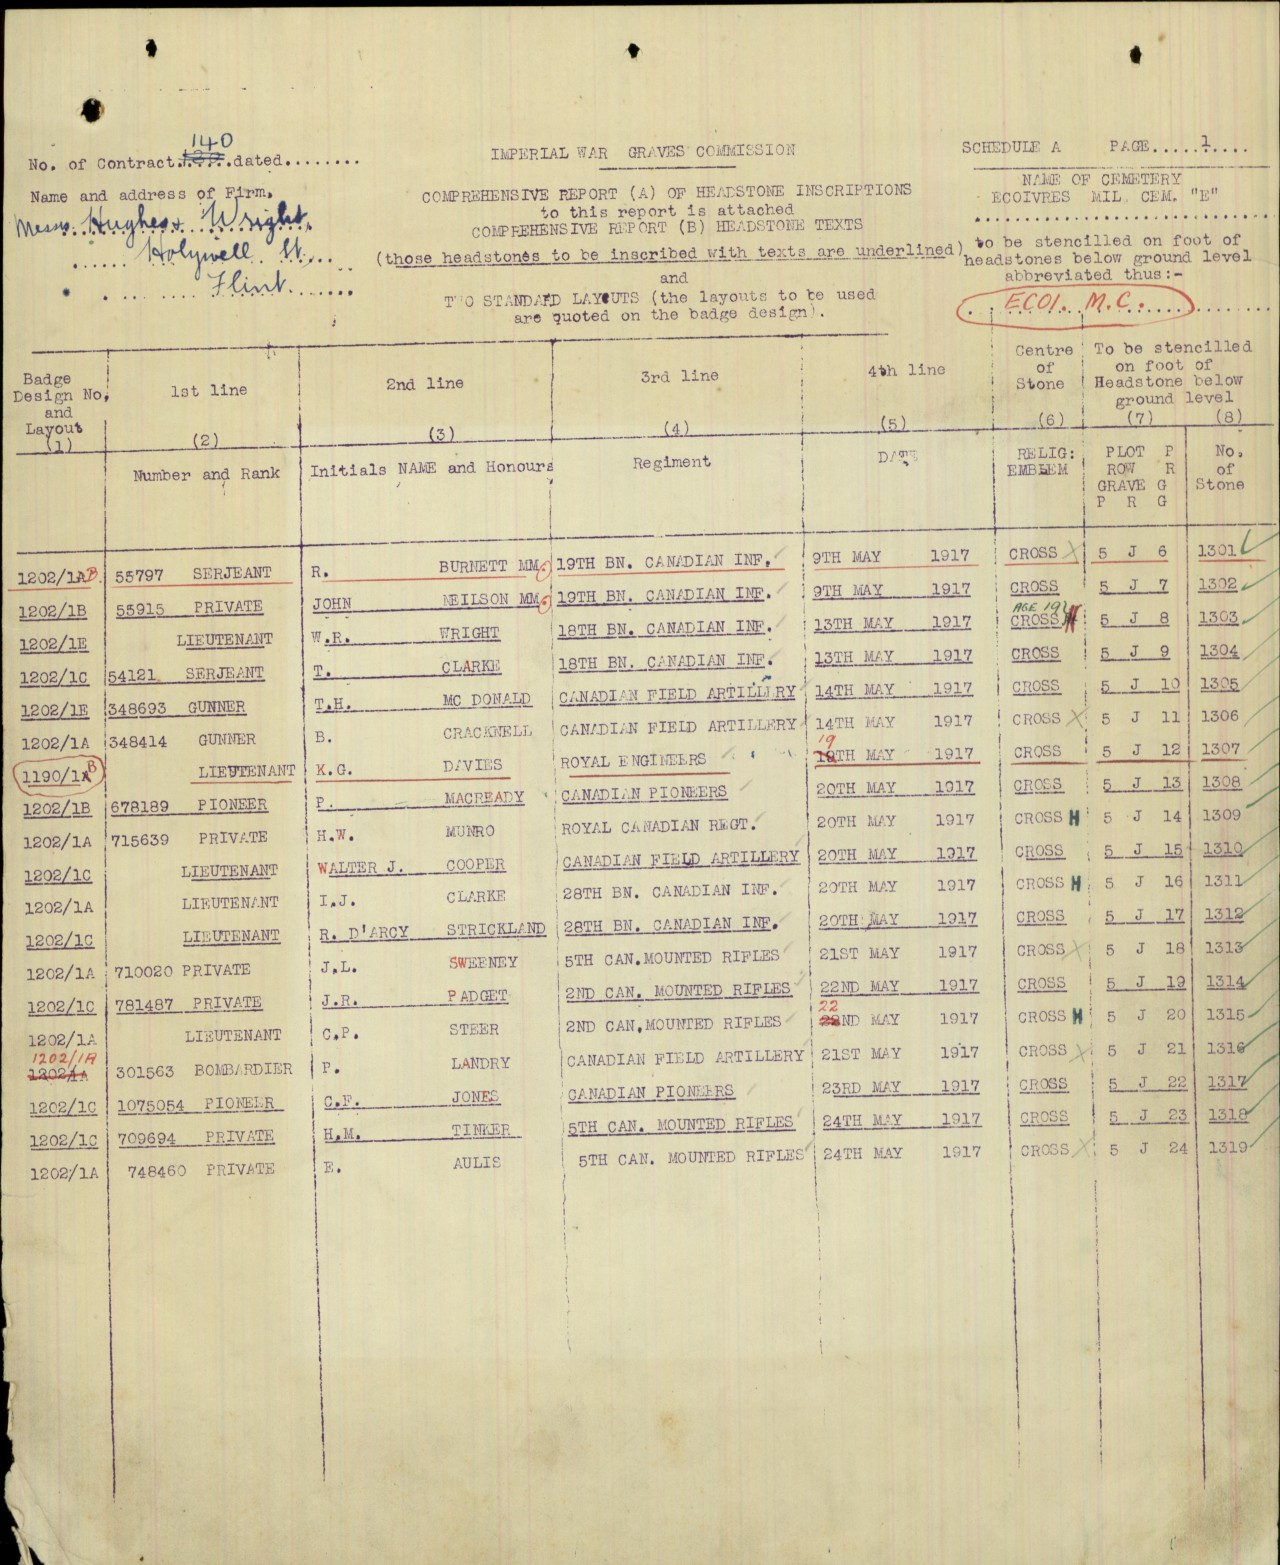 140
No. of Contract.......dated........
Name and address of Firm.
Messrs. Hughes & Wright.
Holywell. St.
Flint.
IMPERIAL WAR GRAVES COMMISSION
COMPREHENSIVE REPORT (A) OF HEADSTONE INSCRIPTIONS
to this report is attached
COMPREHENSIVE REPORT (B) HEADSTONE TEXTS
(those headstones to be inscribed with texts are underlined)
and
TWO STANDARD LAYOUTS (the layouts to be used
are quoted on the badge design).
SCHEDULE A PAGE.....1....
NAME OF CEMETERY
ECOIVRES MIL. CEM. "E"
to be stencilled on foot of
headstones below ground level
abbreviated thus:-
ECOI. M.C.
Badge Design No. and Layout (1) | 1st line (2) | 2nd line (3) | 3rd line (4) | 4th line (5) | Centre of Stone (6) | To be stencilled on foot of Headstone below ground level (7) (8)
Number and Rank | Initials NAME and Honours | Regiment | DATE | RELIG: EMBLEM | PLOT P ROW R GRAVE G P R G | No. of Stone
1202/1AB 55797 SERJEANT R. BURNETT MM 19TH BN. CANADIAN INF. 9TH MAY 1917 CROSS X 5 J 6 1301
1202/1B 55915 PRIVATE JOHN NEILSON MM 19TH BN. CANADIAN INF. 9TH MAY 1917 CROSS 5 J 7 1302
1202/1E LIEUTENANT W.R. WRIGHT 18TH BN. CANADIAN INF. 13TH MAY 1917 AGE 19 CROSS 5 J 8 1303
1202/1C 54121 SERJEANT T. CLARKE 18TH BN. CANADIAN INF. 13TH MAY 1917 CROSS 5 J 9 1304
1202/1E 348693 GUNNER T.H. MC DONALD CANADIAN FIELD ARTILLERY 14TH MAY 1917 CROSS 5 J 10 1305
1202/1A 348414 GUNNER B. CRACKNELL CANADIAN FIELD ARTILLERY 14TH MAY 1917 CROSS X 5 J 11 1306
1190/1AB LIEUTENANT K.G. DAVIES ROYAL ENGINEERS 19TH MAY 1917 CROSS 5 J 12 1307
1202/1B 678189 PIONEER P. MACREADY CANADIAN PIONEERS 20TH MAY 1917 CROSS 5 J 13 1308
1202/1A 715639 PRIVATE H.W. MUNRO ROYAL CANADIAN REGT. 20TH MAY 1917 CROSS H 5 J 14 1309
1202/1C LIEUTENANT WALTER J. COOPER CANADIAN FIELD ARTILLERY 20TH MAY 1917 CROSS 5 J 15 1310
1202/1A LIEUTENANT I.J. CLARKE 28TH BN. CANADIAN INF. 20TH MAY 1917 CROSS H 5 J 16 1311
1202/1C LIEUTENANT R. D'ARCY STRICKLAND 28TH BN. CANADIAN INF. 20TH MAY 1917 CROSS 5 J 17 1312
1202/1A 710020 PRIVATE J.L. SWEENEY 5TH CAN.MOUNTED RIFLES 21ST MAY 1917 CROSS X 5 J 18 1313
1202/1C 781487 PRIVATE J.R. PADGET 2ND CAN. MOUNTED RIFLES 22ND MAY 1917 CROSS 5 J 19 1314
1202/1A LIEUTENANT C.P. STEER 2ND CAN.MOUNTED RIFLES 22ND MAY 1917 CROSS H 5 J 20 1315
1202/1A 301563 BOMBARDIER P. LANDRY CANADIAN FIELD ARTILLERY 21ST MAY 1917 CROSS X 5 J 21 1316
1202/1C 1075054 PIONEER C.F. JONES CANADIAN PIONEERS 23RD MAY 1917 CROSS 5 J 22 1317
1202/1C 709694 PRIVATE H.M. TINKER 5TH CAN. MOUNTED RIFLES 24TH MAY 1917 CROSS 5 J 23 1318
1202/1A 748460 PRIVATE E. AULIS 5TH CAN. MOUNTED RIFLES 24TH MAY 1917 CROSS X 5 J 24 1319